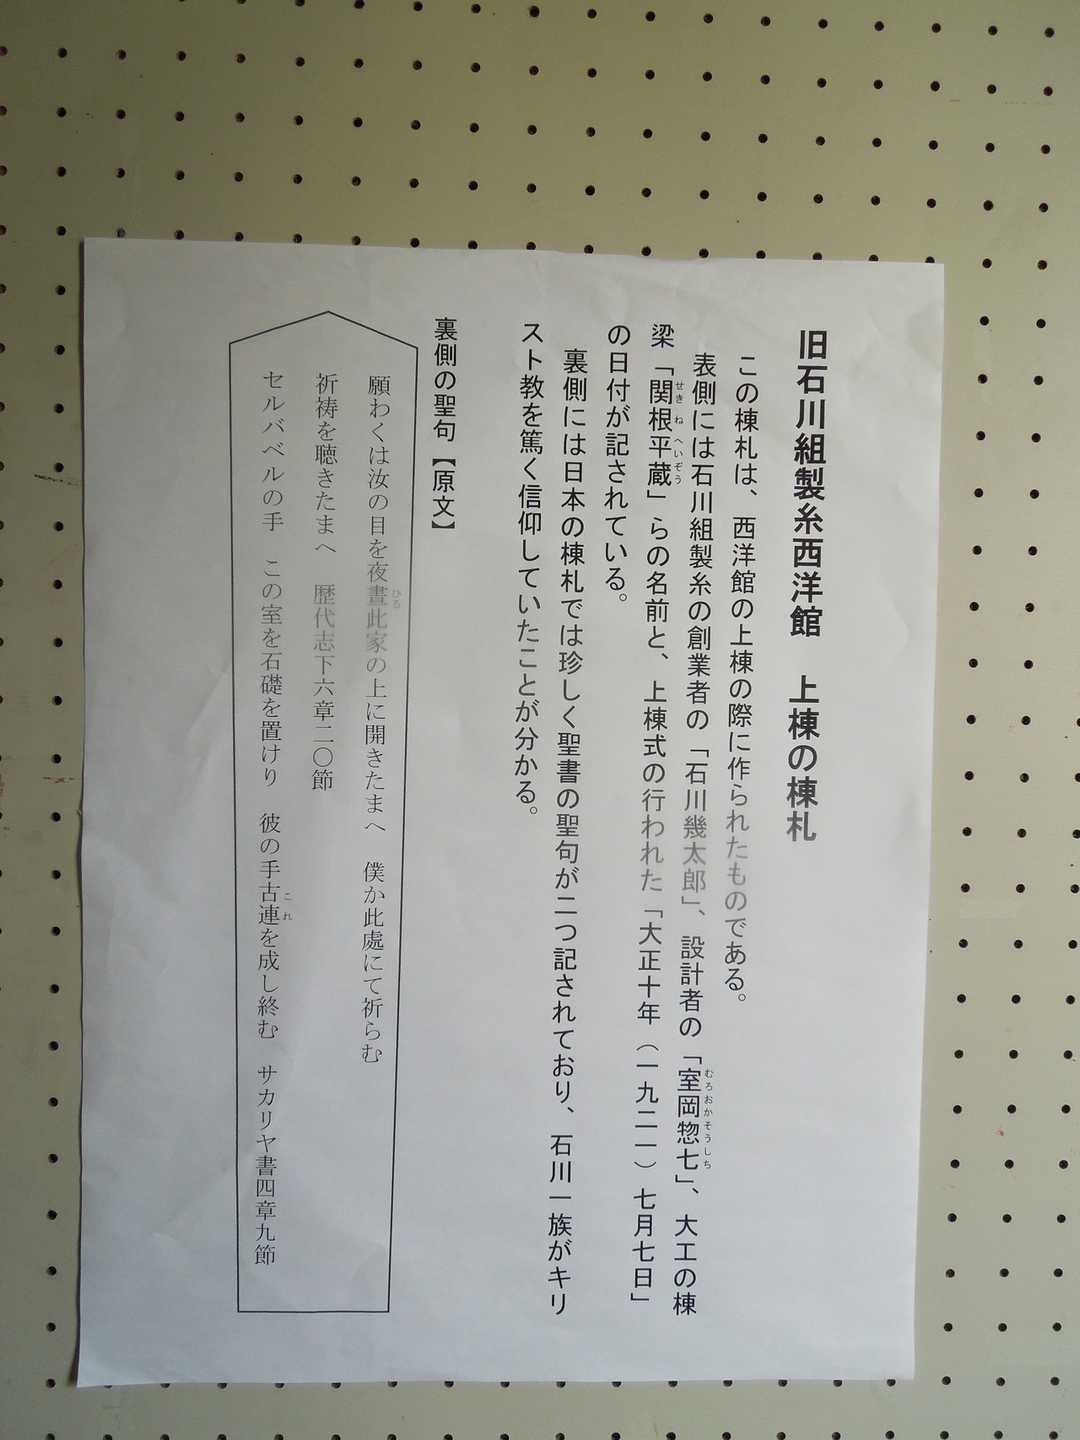 旧石川組製糸西洋館　上棟の棟札
この棟札は、西洋館の上棟の際に作られたものである。
表側には石川組製糸の創業者の「石川幾太郎」、設計者の「室岡惣七」、大工の棟
むろおかそうしち
梁「関根平蔵」らの名前と、上棟式の行われた「大正十年（一九二一）七月七日」
せきねへいぞう
の日付が記されている。
裏側には日本の棟札では珍しく聖書の聖句が二つ記されており、石川一族がキリ
スト教を篤く信仰していたことが分かる。
裏側の聖句【原文】
願わくは汝の目を夜晝此家の上に開きたまへ　僕か此處にて祈らむ
ひる
祈祷を聴きたまへ　歴代志下六章二〇節
セルバベルの手　この室を石礎を置けり　彼の手古連を成し終む　サカリヤ書四章九節
これ